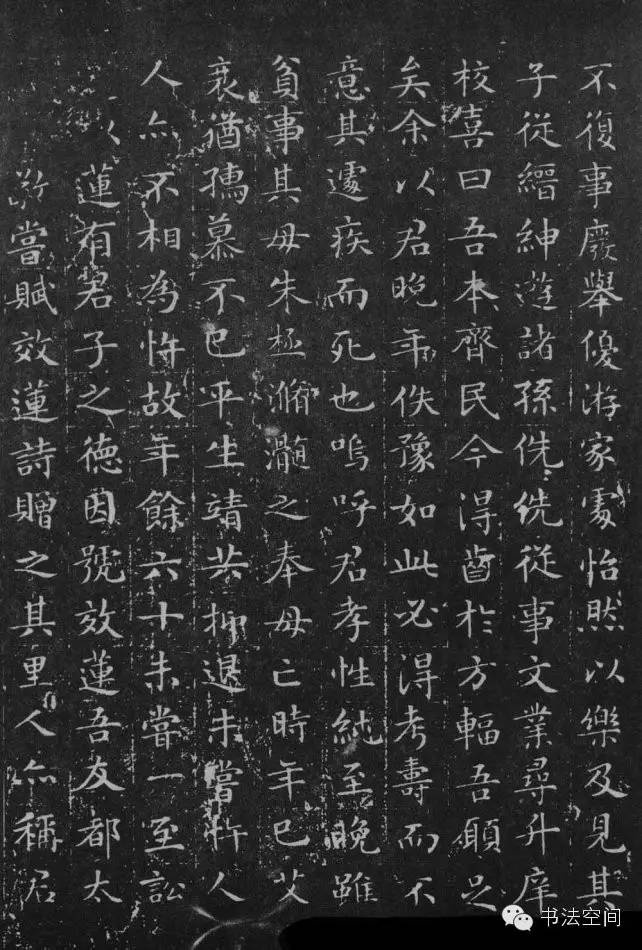 不復事廢舉優游家處怡然以樂及見其
子從縉紳遊諸孫侁侁從事文業尋升庠
校喜曰吾本齊民今得齒於方輻吾願足
矣余以君晚年佚豫如此必得考壽而不
意其遽疾而死也嗚呼君孝性純至晚雖
貧事其母朱極滫瀡之奉母亡時年已艾
衰猶孺慕不已平生靖共抑退未嘗忤人
人亦不相為忤故年餘六十未嘗一至訟
以蓮有君子之德因號效蓮吾友都太
嘗賦效蓮詩贈之其里人亦稱君
书法空间